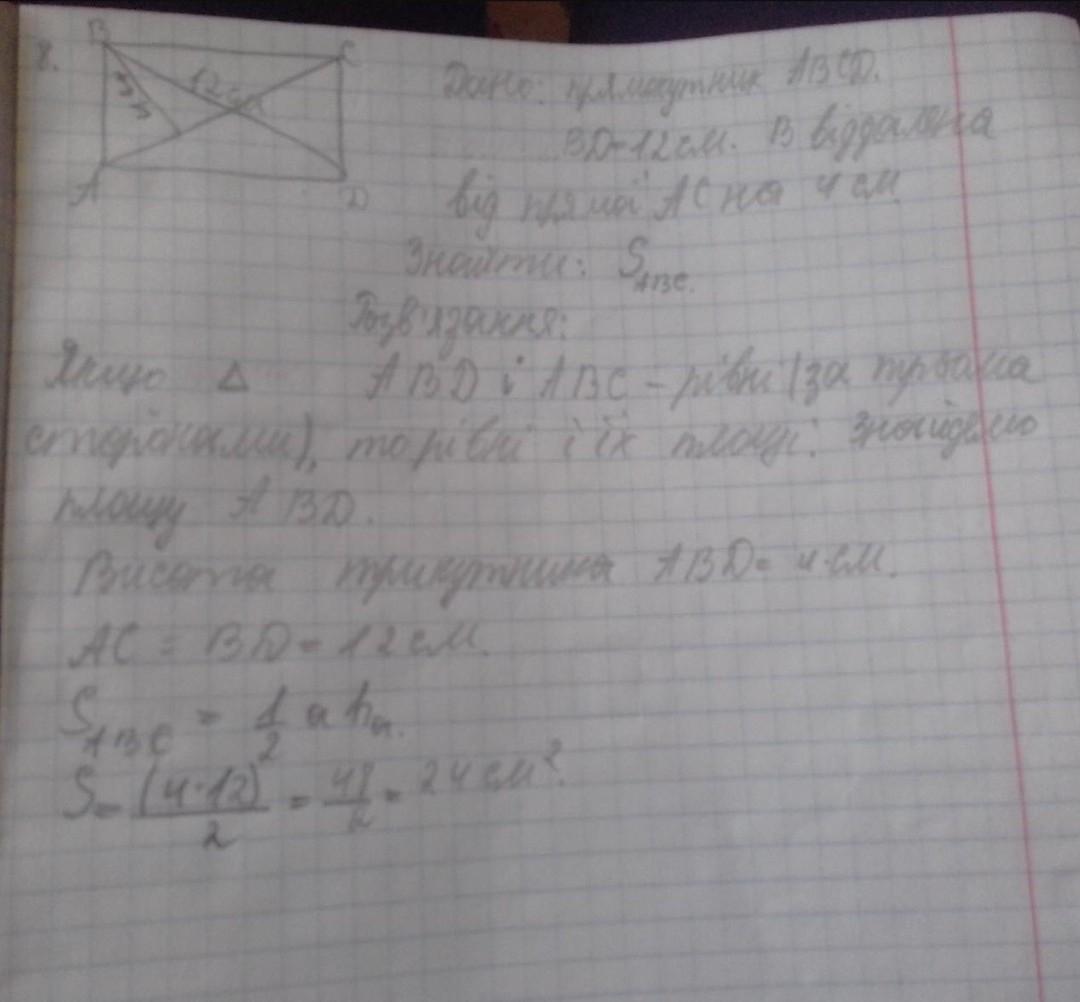 8.
B
C
12см
A
D
Дано: прямокутник ABCD.
BD=12см. В віддалена
від прямої AC на 4 см.
Знайти: S ABC.
Розв'язання:
Якщо Δ ABD і ABC - рівні (за трьома
сторонами), то рівні і їх площі. Знайдемо
площу ABD.
Висота трикутника ABD= 4 см.
AC = BD = 12 см.
S ABC = 1/2 a hₐ.
S = (4·12)/2 = 48/2 = 24 см².